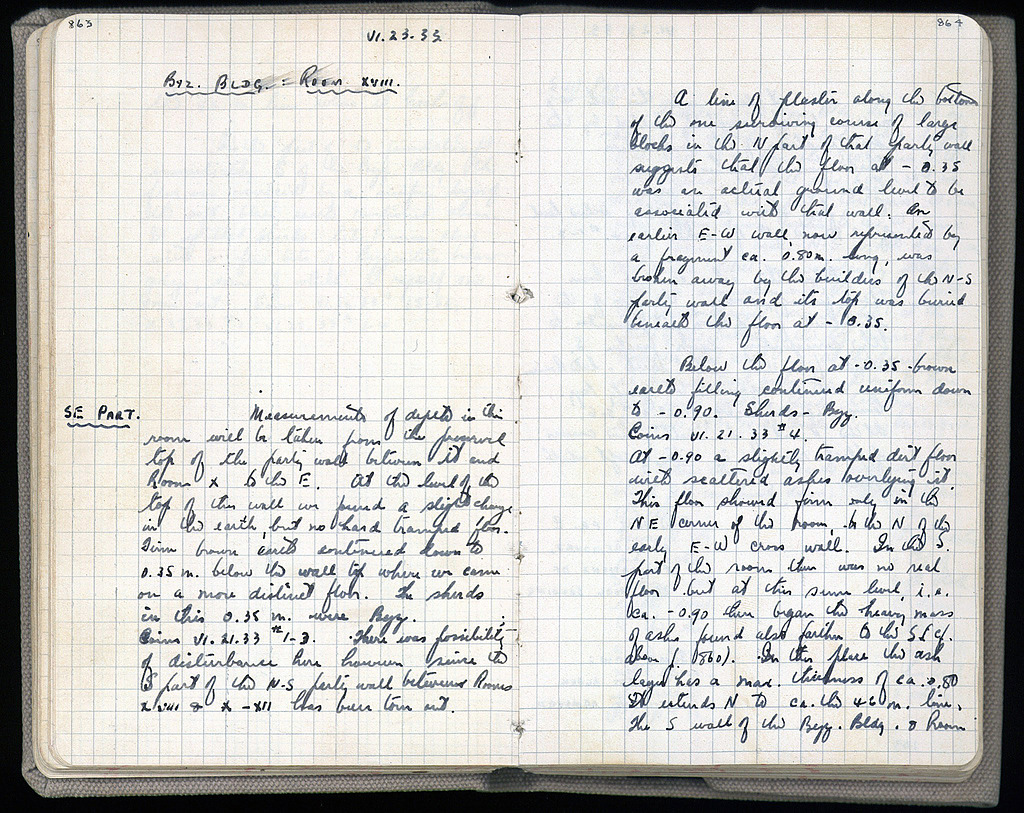 863
VI.23.33
BYZ. BLDG. : ROOM XVIII.
SE PART.
Measurements of depth in this
room will be taken from the preserved
top of the party wall between it and
Room X to the E. At the level of the
top of this wall we found a slight change
in the earth, but no hard tramped floor.
Firm brown earth continued down to
0.35 m. below the wall top where we came
on a more distinct floor. The sherds
in this 0.35 m. were Byz.
Coins VI.21.33 #1-3. There was possibility
of disturbance here however since the
S part of the N-S party wall between Rooms
XVIII & X-XII has been torn out.
864
A line of plaster along the bottom
of the one surviving course of large
blocks in the N part of that party wall
suggests that the floor at -0.35
was an actual ground level to be
associated with that wall. An
earlier E-W wall, now represented by
a fragment ca. 0.80 m. long, was
broken away by the builders of the N-S
party wall and its top was buried
beneath the floor at -0.35.
Below the floor at -0.35 brown
earth filling continued uniform down
to -0.90. Sherds - Byz.
Coins VI.21.33 #4.
At -0.90 a slightly tramped dirt floor
with scattered ashes overlying it.
This floor showed firm only in the
NE corner of the room, to the N of the
early E-W cross wall. In the S.
part of the room there was no real
floor but at this same level, i.e.
ca. -0.90 there began the heavy mass
of ashes found also farther to the S (cf.
above p. 860). In this place the ash
layer has a max. thickness of ca. 0.80
It extends N to ca. the 46 m. line.
The S wall of the Byz. Bldg. & Room